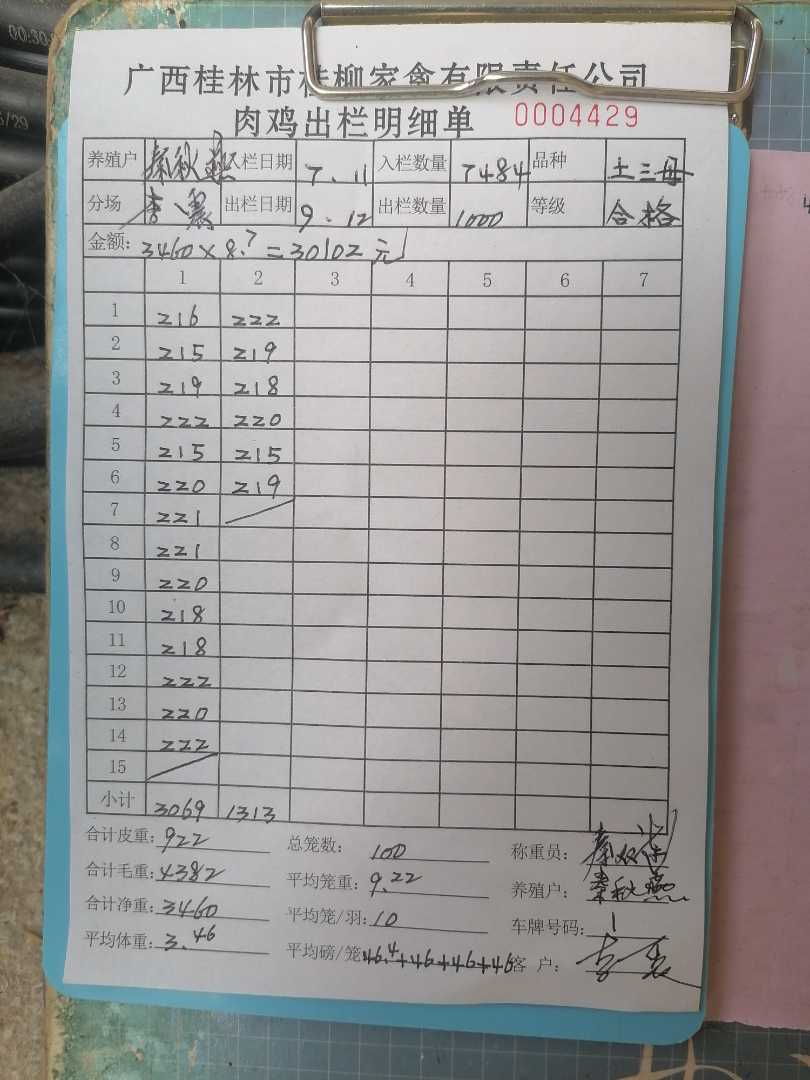 广西桂林市桂柳家禽有限责任公司
肉鸡出栏明细单 0004429
养殖户 秦秋燕 入栏日期 7.11 入栏数量 7484 品种 土三母
分场 出栏日期 9.12 出栏数量 1000 等级 合格
金额: 3460×8.7=30102元
1 2 3 4 5 6 7
1 216 222
2 215 219
3 219 218
4 222 220
5 215 215
6 220 219
7 221
8 221
9 220
10 218
11 218
12 222
13 220
14 222
15
小计 3069 1313
合计皮重: 922 总笼数: 100 称重员:
合计毛重: 4382 平均笼重: 9.22 养殖户: 秦秋燕
合计净重: 3460 平均笼/羽: 10 车牌号码: 1
平均体重: 3.46 平均磅/笼 46.4+46+46+46 客 户:
00:30:0
5/29